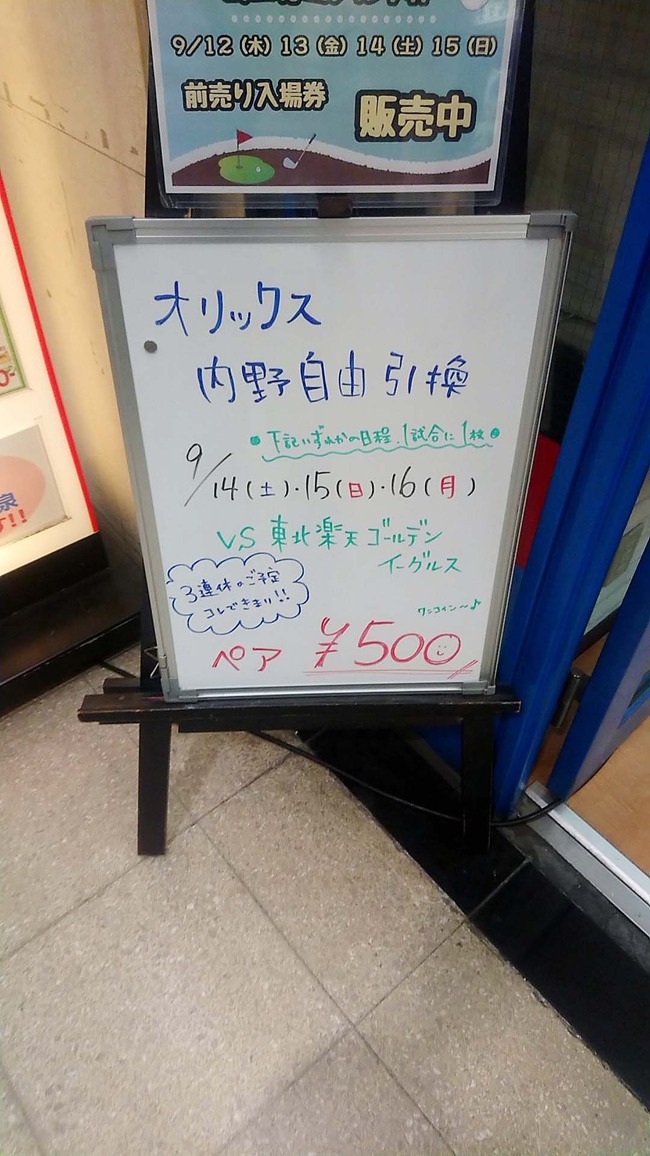 9/12(木) 13(金) 14(土) 15(日)
前売り入場券
販売中
オリックス
内野自由引換
下記いずれかの日程、1試合に1枚
9/14(土)・15(日)・16(月)
VS 東北楽天ゴールデン
イーグルス
3連休のご予定
コレできまり!!
ワンコイン〜♪
ペア ¥500